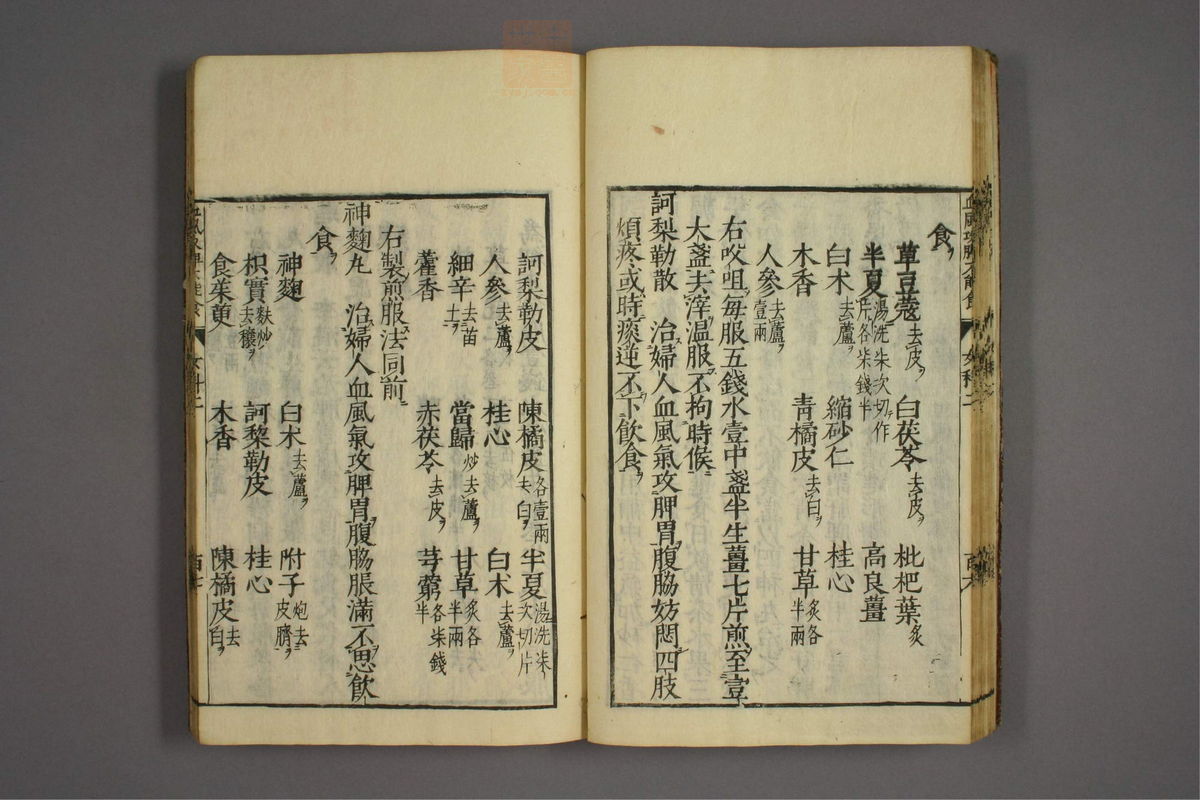 食ヲ
草豆蔻去皮ヲ 白茯苓去皮ヲ 枇杷葉炙
半夏湯洗柒次切作片各柒錢半 高良薑
白朮去蘆ヲ 縮砂仁 桂心
木香 青橘皮去白ヲ 甘草炙各半兩
人參去蘆ヲ壹兩
右㕮咀毎服五錢水壹中盞半生薑七片煎至壹
大盞去滓温服不拘時候
訶梨勒散 治婦人血風氣攻脾胃腹脇妨悶四肢
煩疼或時痰逆不下飲食
訶梨勒皮 陳橘皮去白各壹兩 半夏湯洗柒次切片
人參去蘆 桂心 白朮去蘆ヲ
細辛去苗土 當歸去蘆炒 甘草炙各半兩
藿香 赤茯苓去皮ヲ 芎藭各柒錢半
右製煎服法同前
神麴丸 治婦人血風氣攻脾胃腹脇脹滿不思飲
食ヲ
神麴 白朮去蘆 附子炮去皮臍
枳實麩炒去穰 訶梨勒皮 桂心
食茱萸 木香 陳橘皮去白